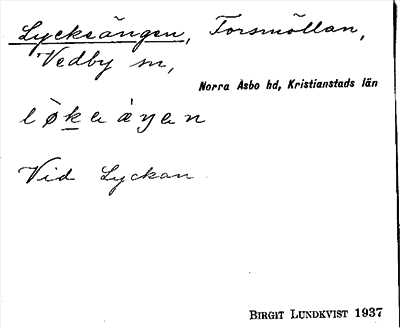 Lyckeängen, Forsmöllan,
Vedby sn,
Norra Åsbo hd, Kristianstads län
Vid Lyckan
BIRGIT LUNDKVIST 1937